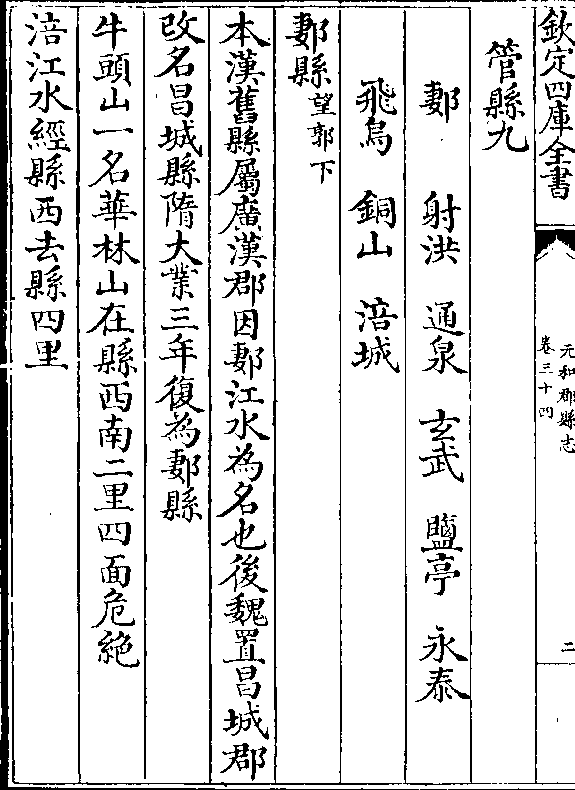 欽定四庫全書
元和郡縣志
卷三十四
二
管縣九
郪 射洪 通泉 玄武 鹽亭 永泰
飛烏 銅山 涪城
郪縣望郭下
本漢舊縣屬廣漢郡因郪江水為名也後魏置昌城郡
改名昌城縣隋大業三年復為郪縣
牛頭山一名華林山在縣西南二里四面危絶
涪江水經縣西去縣四里